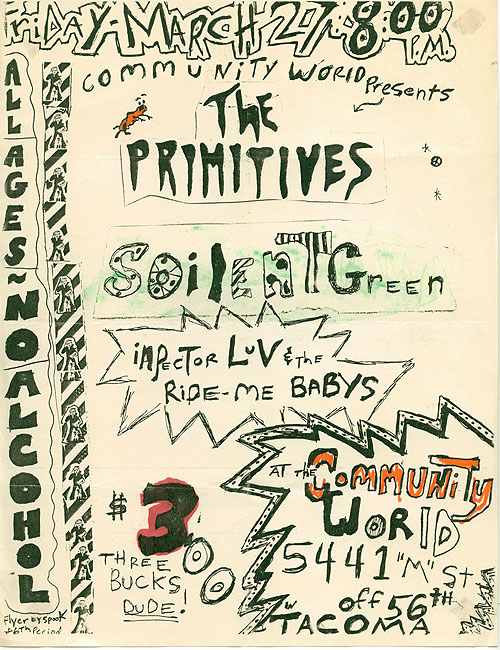 FRIDAY-MARCH 27 8:00 P.M.
COMMUNITY WORLD Presents
THE
PRIMITIVES
SOilENT Green
inpector LUV & the
RiDE-ME BABYS
AT THE COMMUNITY
WORLD
5441 "M" St.
off 56TH
TACOMA
$3
THREE
BUCKS
DUDE!
ALL AGES~NO ALCOHOL
Flyer by spook
+6th Period